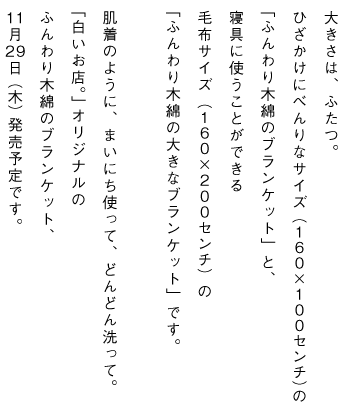 大きさは、ふたつ。
ひざかけにべんりなサイズ（160×100センチ）の
「ふんわり木綿のブランケット」と、
寝具に使うことができる
毛布サイズ（160×200センチ）の
「ふんわり木綿の大きなブランケット」です。
肌着のように、まいにち使って、どんどん洗って。
「白いお店。」オリジナルの
ふんわり木綿のブランケット、
11月29日（木）発売予定です。